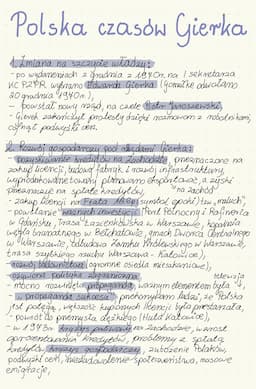 Polska czasów Gierka
1. Zmiana na szczycie władzy:
- po wydarzeniach z grudnia z 1970r. na I sekretarza
KC PZPR wybrano Edwarda Gierka (Gomułkę odwołano
20 grudnia 1970r.),
- powstał nowy rząd, na czele Piotr Jaroszewicz,
- Gierek zakończył protesty dzięki rozmowom z robotnikami,
cofnął podwyżki cen.
2. Rozwój gospodarczy pod rządami Gierka:
- pozyskiwanie kredytów na Zachodzie, przeznaczone na
zakup licencji, budowę fabryk i rozwój infrastruktury,
wyprodukowane towary planowano eksportować, a zyski
przeznaczyć na spłatę kredytów, na zachód
- zakup licencji na Fiata 126p (symbol epoki) tzw. "maluch",
- powstanie ważnych inwestycji (Port Północny i Rafineria
w Gdańsku, Trasa Łazienkowska w Warszawie, kopalnia
węgla brunatnego w Bełchatowie, gmach Dworca Centralnego
w Warszawie, odbudowa Zamku Królewskiego w Warszawie,
trasa szybkiego ruchu Warszawa - Katowice),
- rozwój budownictwa (ogromne osiedla mieszkaniowe),
- ożywiona polityka zagraniczna, telewizja
- mocno rozwinięta propaganda, ważnym elementem była
- "propaganda sukcesu" - przekonywano ludzi, że Polska
jest potęgą, większość kupionych licencji była przestarzała,
- powrót do przemysłu ciężkiego (Huta Katowice),
- w 1973r. kryzys paliwowy na zachodzie, wzrost
oprocentowania kredytów, problemy z spłatą
kredytów, kryzys gospodarczy, zubożenie Polaków,
podwyżki cen, niezadowolenie społeczeństwa, masowe
emigracje,